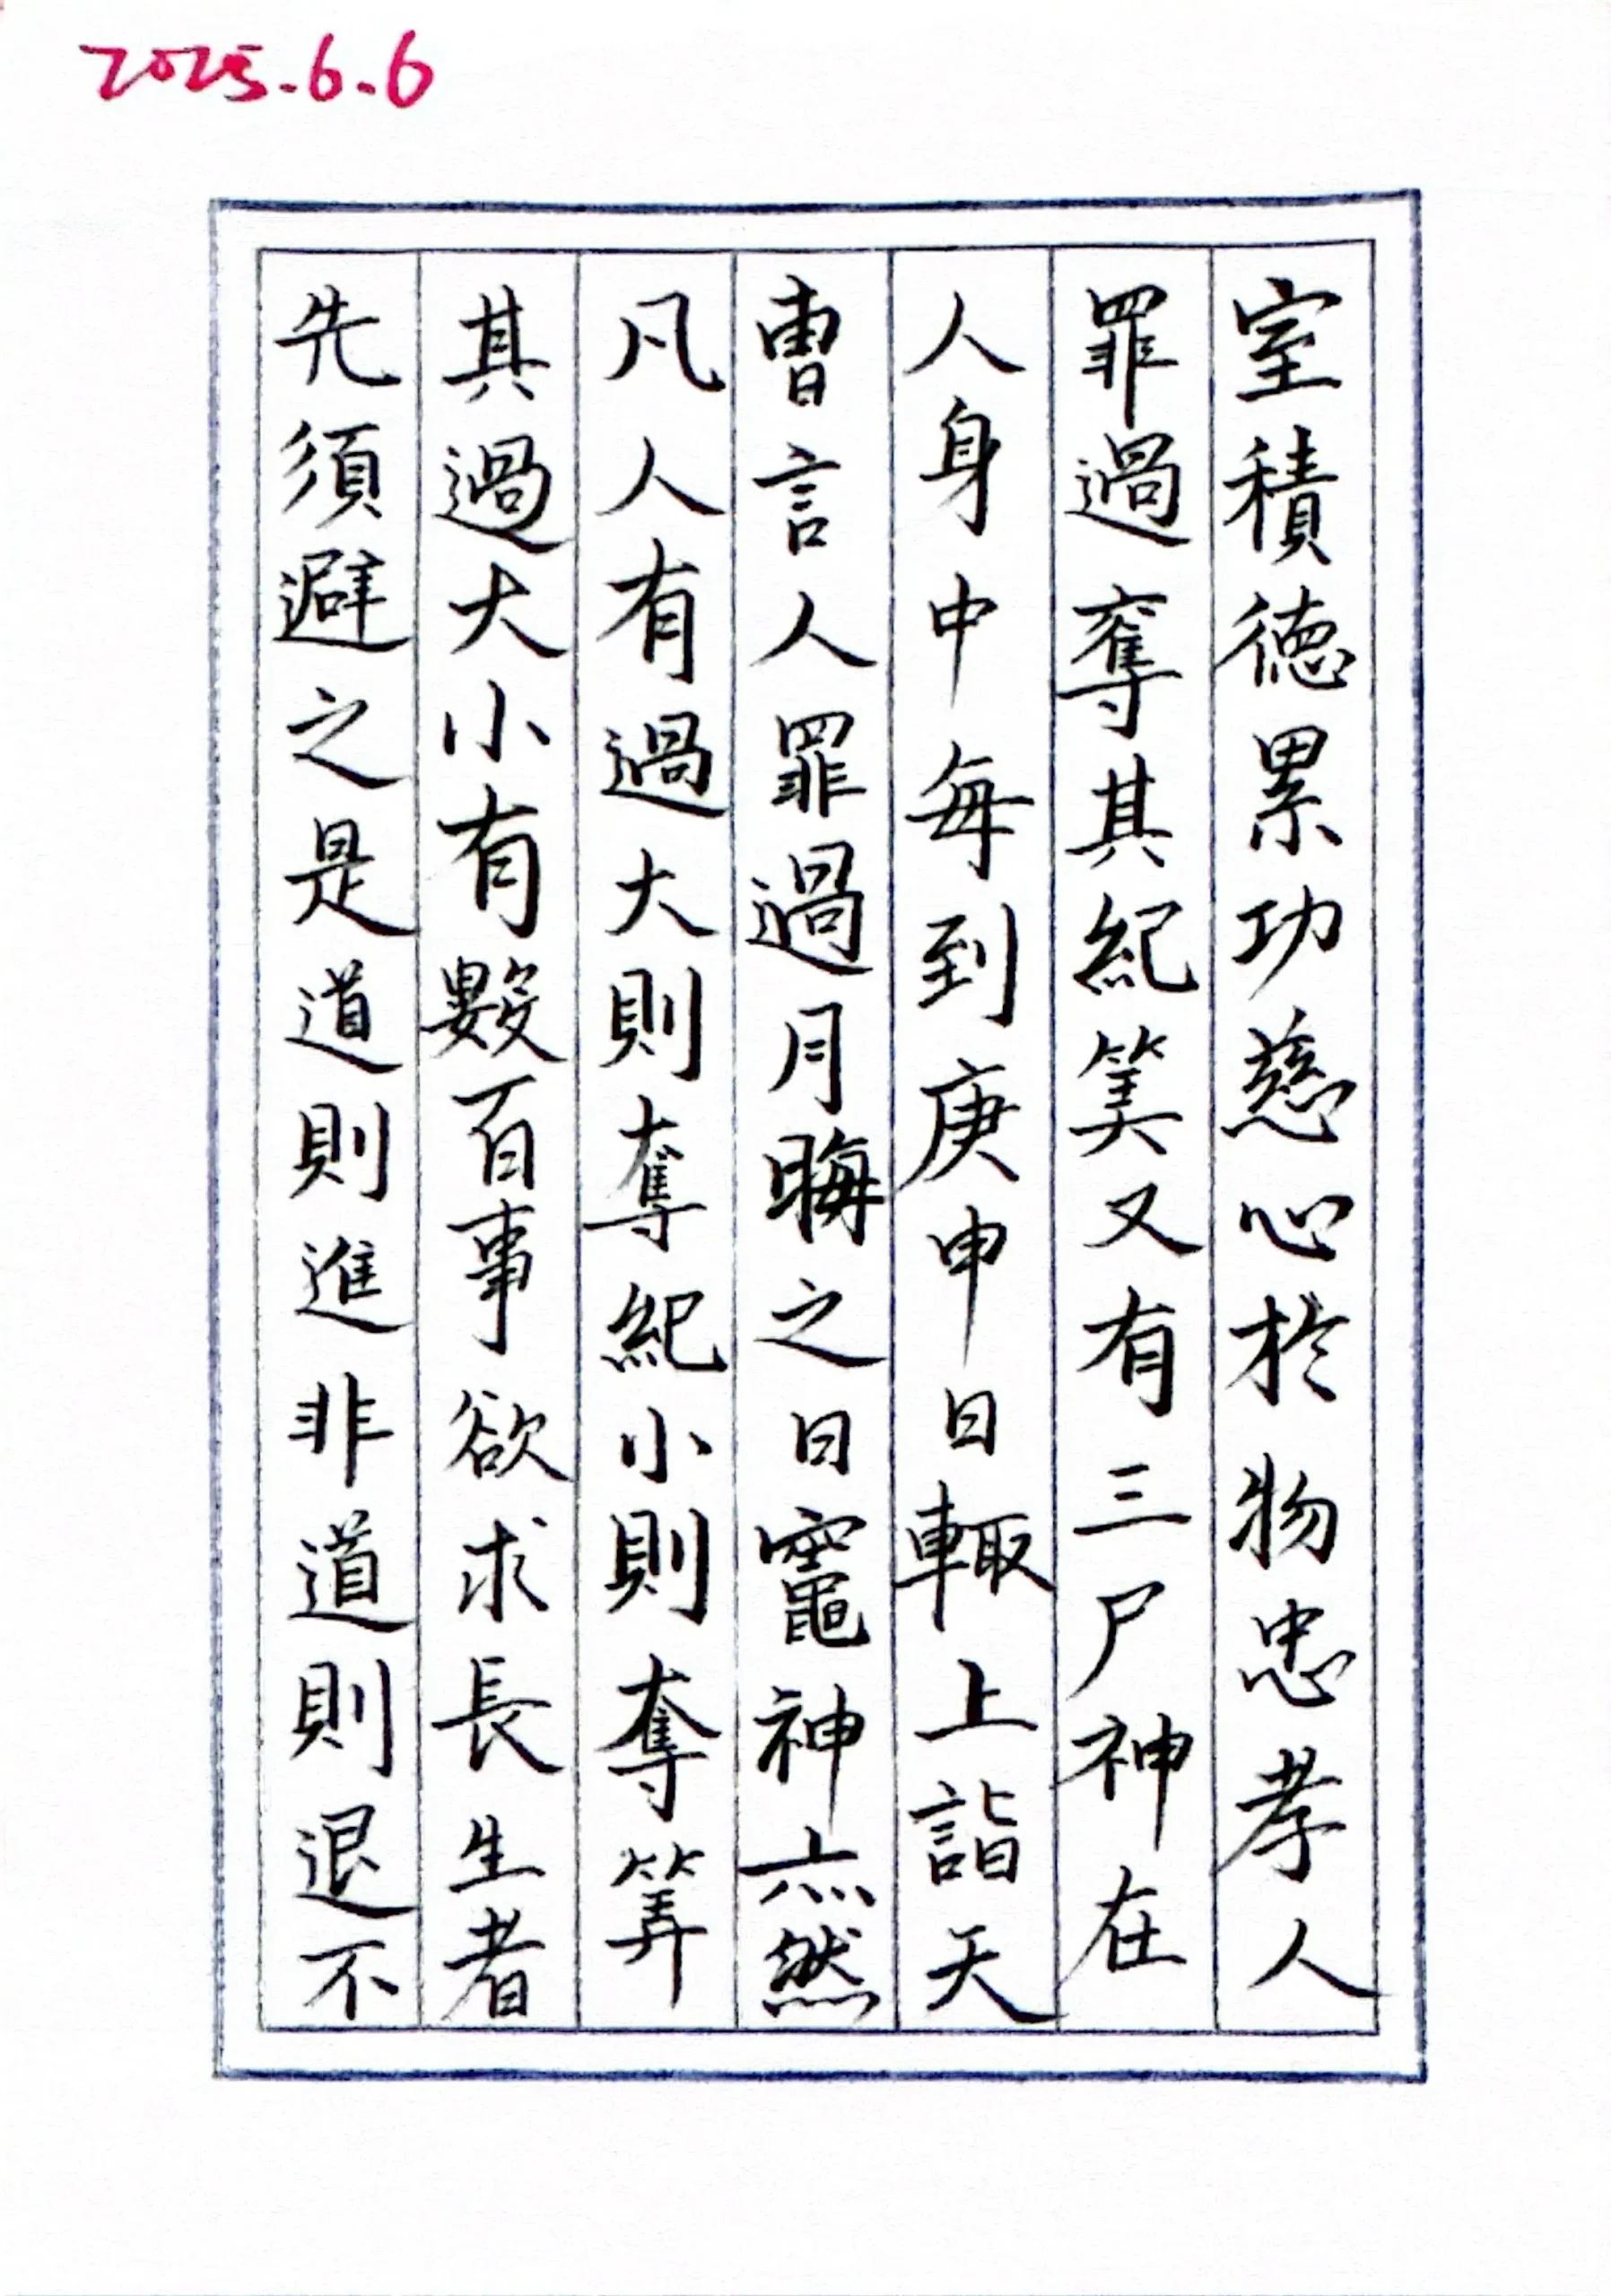 2025.6.6
室積德累功慈心於物忠孝人
罪過奪其紀筭又有三尸神在
人身中每到庚申日輙上詣天
曹言人罪過月晦之日竈神亦然
凡人有過大則奪紀小則奪筭
其過大小有數百事欲求長生者
先須避之是道則進非道則退不